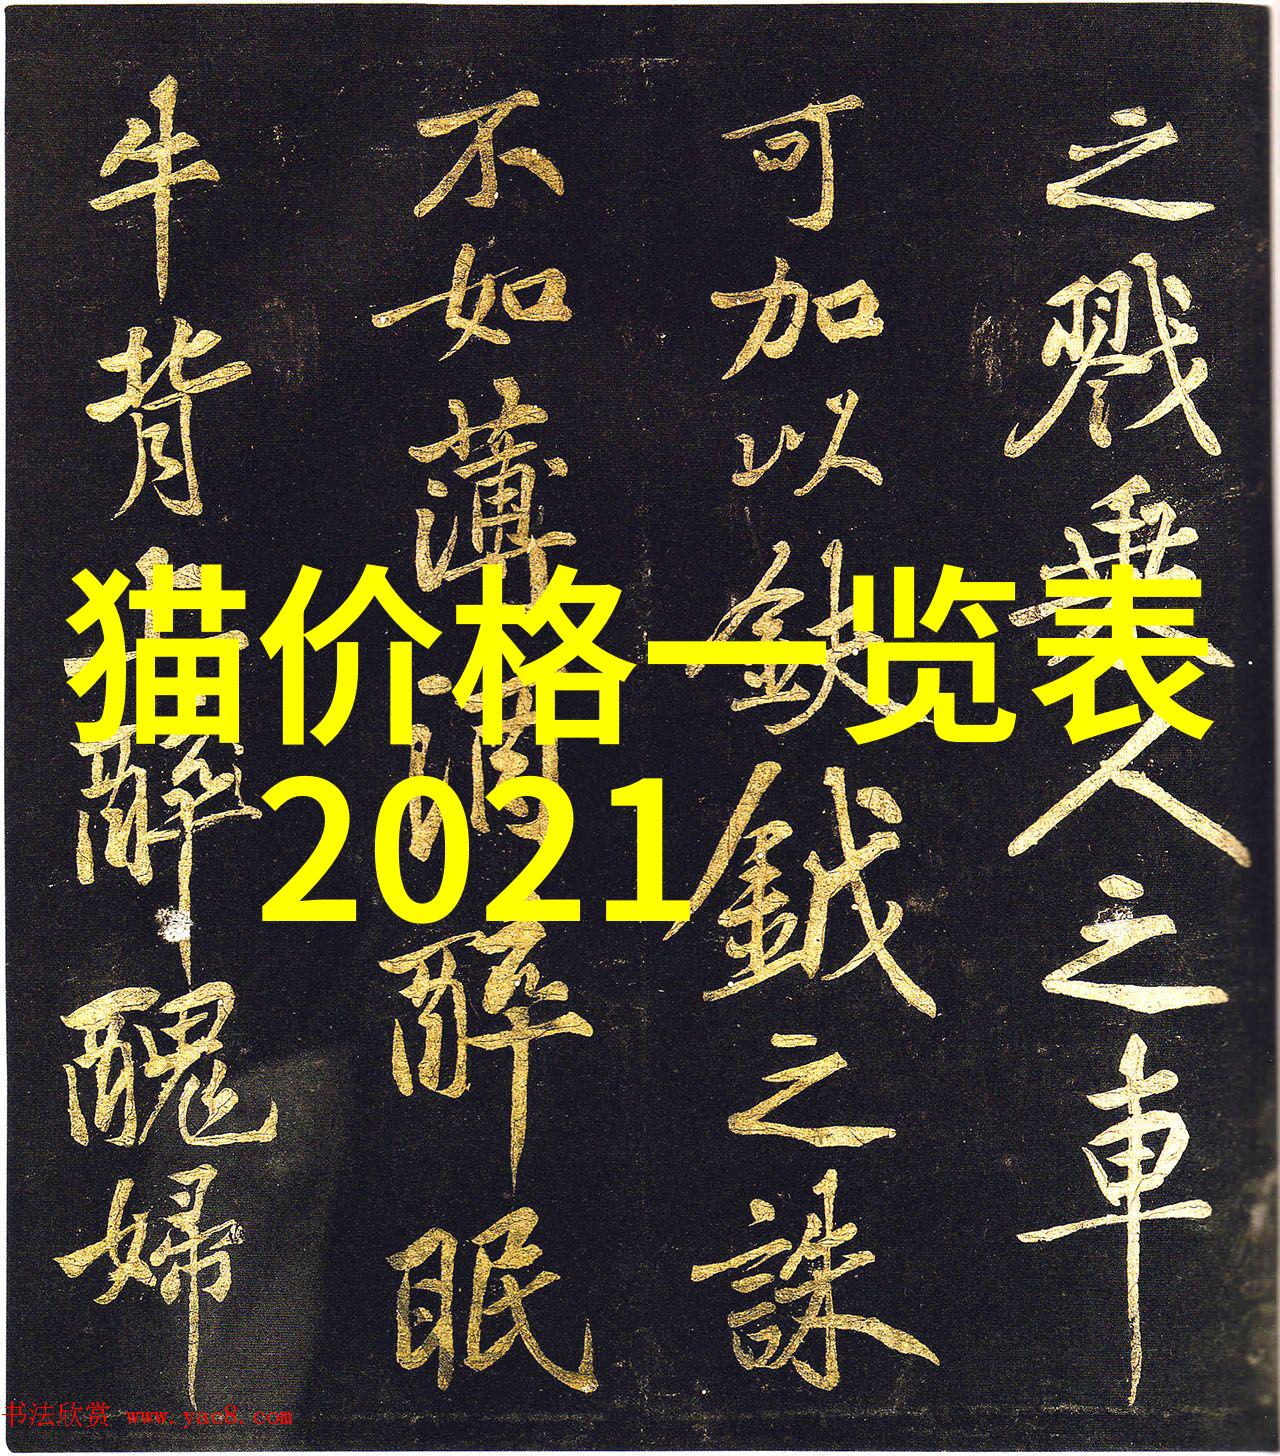 之戮乘人之車
可加以鈇鉞之誅
不如薄酒醉眠
牛背上醉醜婦
猫价格一览表
2021
书法欣赏 www.yac8.com